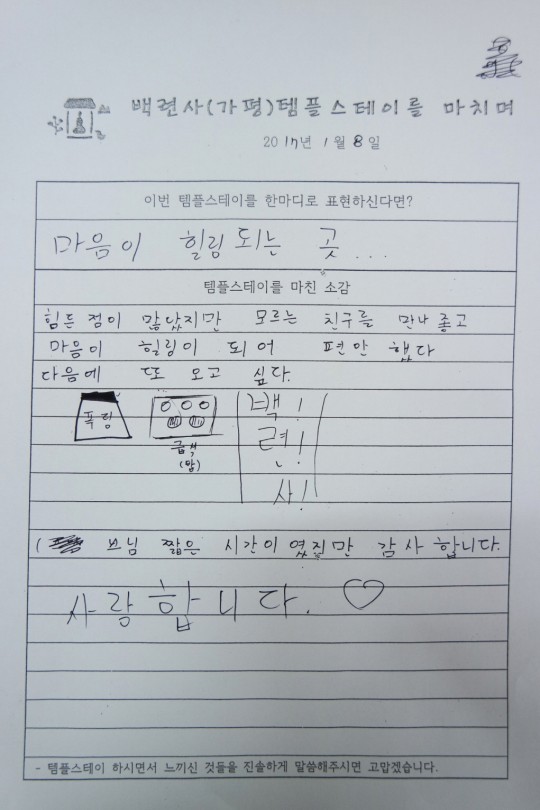 백련사(가평)템플스테이를 마치며
2017년 1월 8일
이번 템플스테이를 한마디로 표현하신다면?
마음이 힐링 되는 곳...
템플스테이를 마친 소감
힘든 점이 많았지만 모르는 친구를 만나 좋고
마음이 힐링이 되어 편안 했다
다음에 또 오고 싶다.
폭링
급식
(밥)
백!
련!
사!
스님 짧은 시간이였지만 감사합니다.
사랑합니다. ♡
- 템플스테이 하시면서 느끼신 것들을 진솔하게 말씀해주시면 고맙겠습니다.